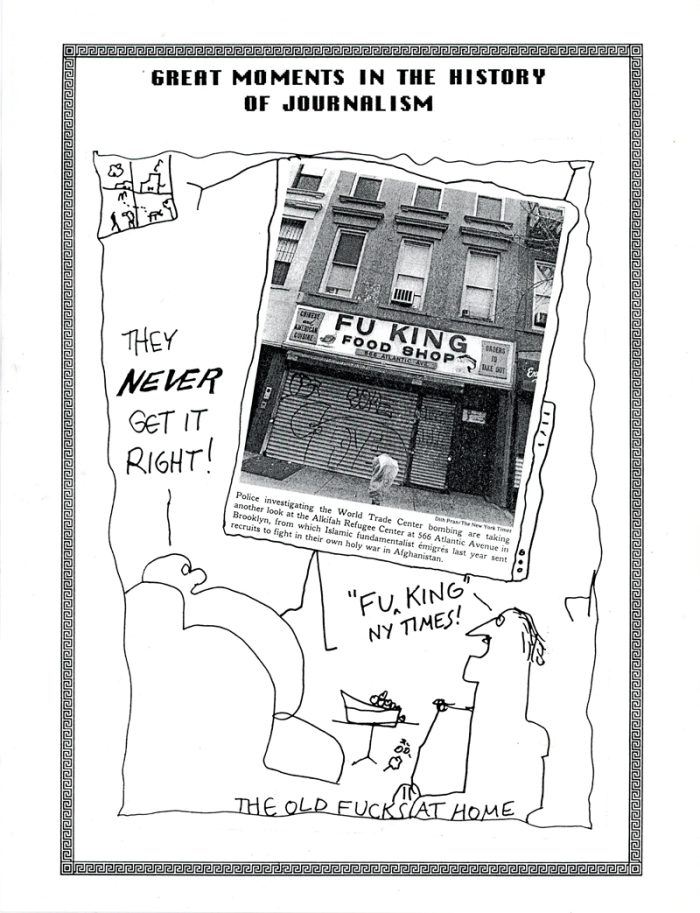 GREAT MOMENTS IN THE HISTORY
OF JOURNALISM
THEY
NEVER
GET IT
RIGHT!
CHINESE
and
AMERICAN
CUISINE
FU KING
FOOD SHOP
566 ATLANTIC AVE.
ORDERS
TO
TAKE OUT
Dith Pran/The New York Times
Police investigating the World Trade Center bombing are taking
another look at the Alkifah Refugee Center at 566 Atlantic Avenue in
Brooklyn, from which Islamic fundamentalist émigrés last year sent
recruits to fight in their own holy war in Afghanistan.
"FU KING"
NY TIMES!
THE OLD FUCKS AT HOME